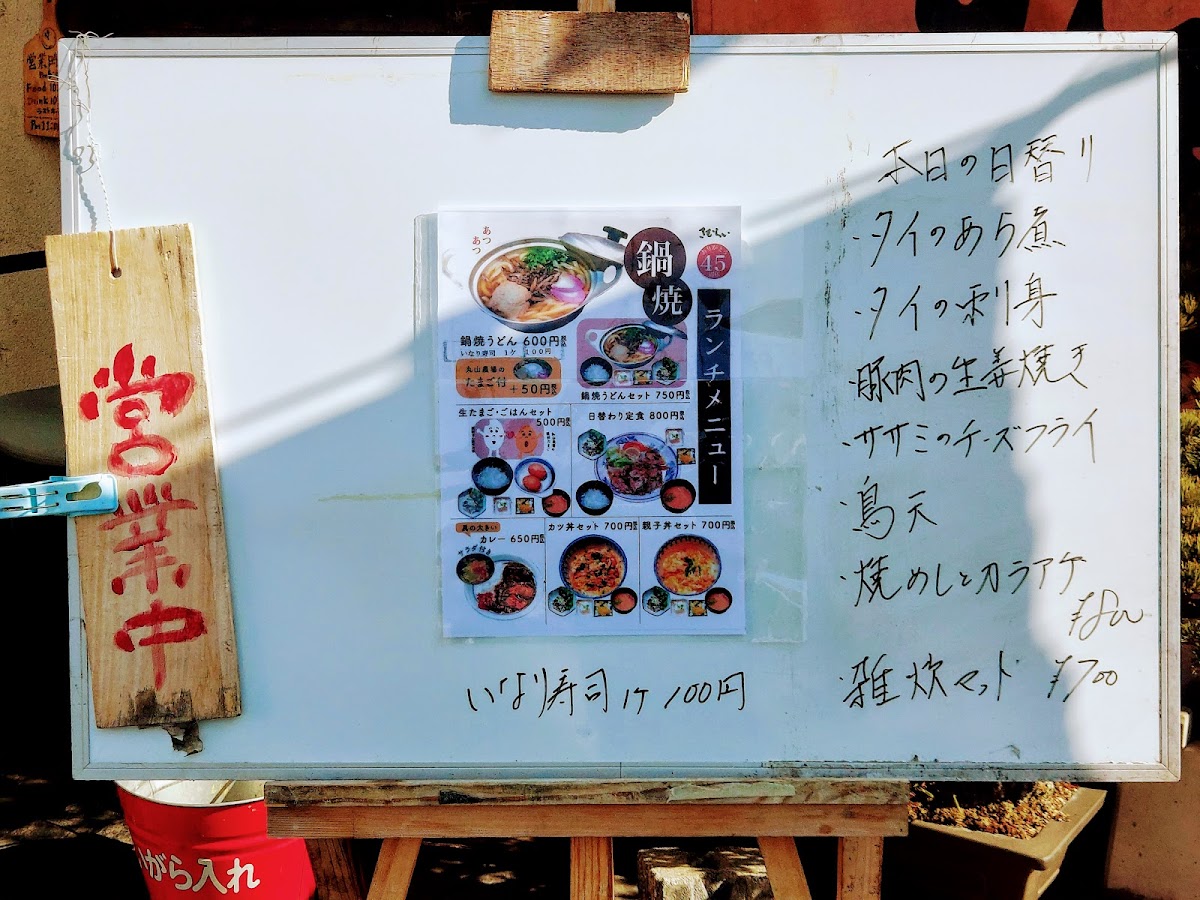 営業時
Food 10
Drink 10
営業中
あつ
あつ
鍋
焼
45
ランチメニュー
鍋焼うどん 600円税込
いなり寿司 1ケ 100円
丸山農場の
たまご付 +50円税込
鍋焼うどんセット 750円税込
生たまご・ごはんセット
500円税込
日替わり定食 800円税込
具の大きい
カレー 650円税込
サラダ付き
カツ丼セット 700円税込
親子丼セット 700円税込
いなり寿司 1ケ 100円
本日の日替り
・タイのあら煮
・タイの刺身
・豚肉の生姜焼き
・ササミのチーズフライ
・鳥天
・焼めしとカラアゲ
¥800
・雑炊セット ¥700
がら入れ